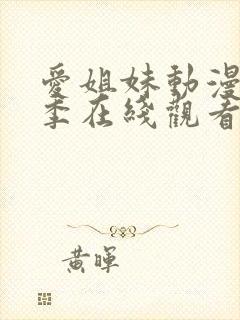 愛姐妹動漫
季在綫觀看
黃暉